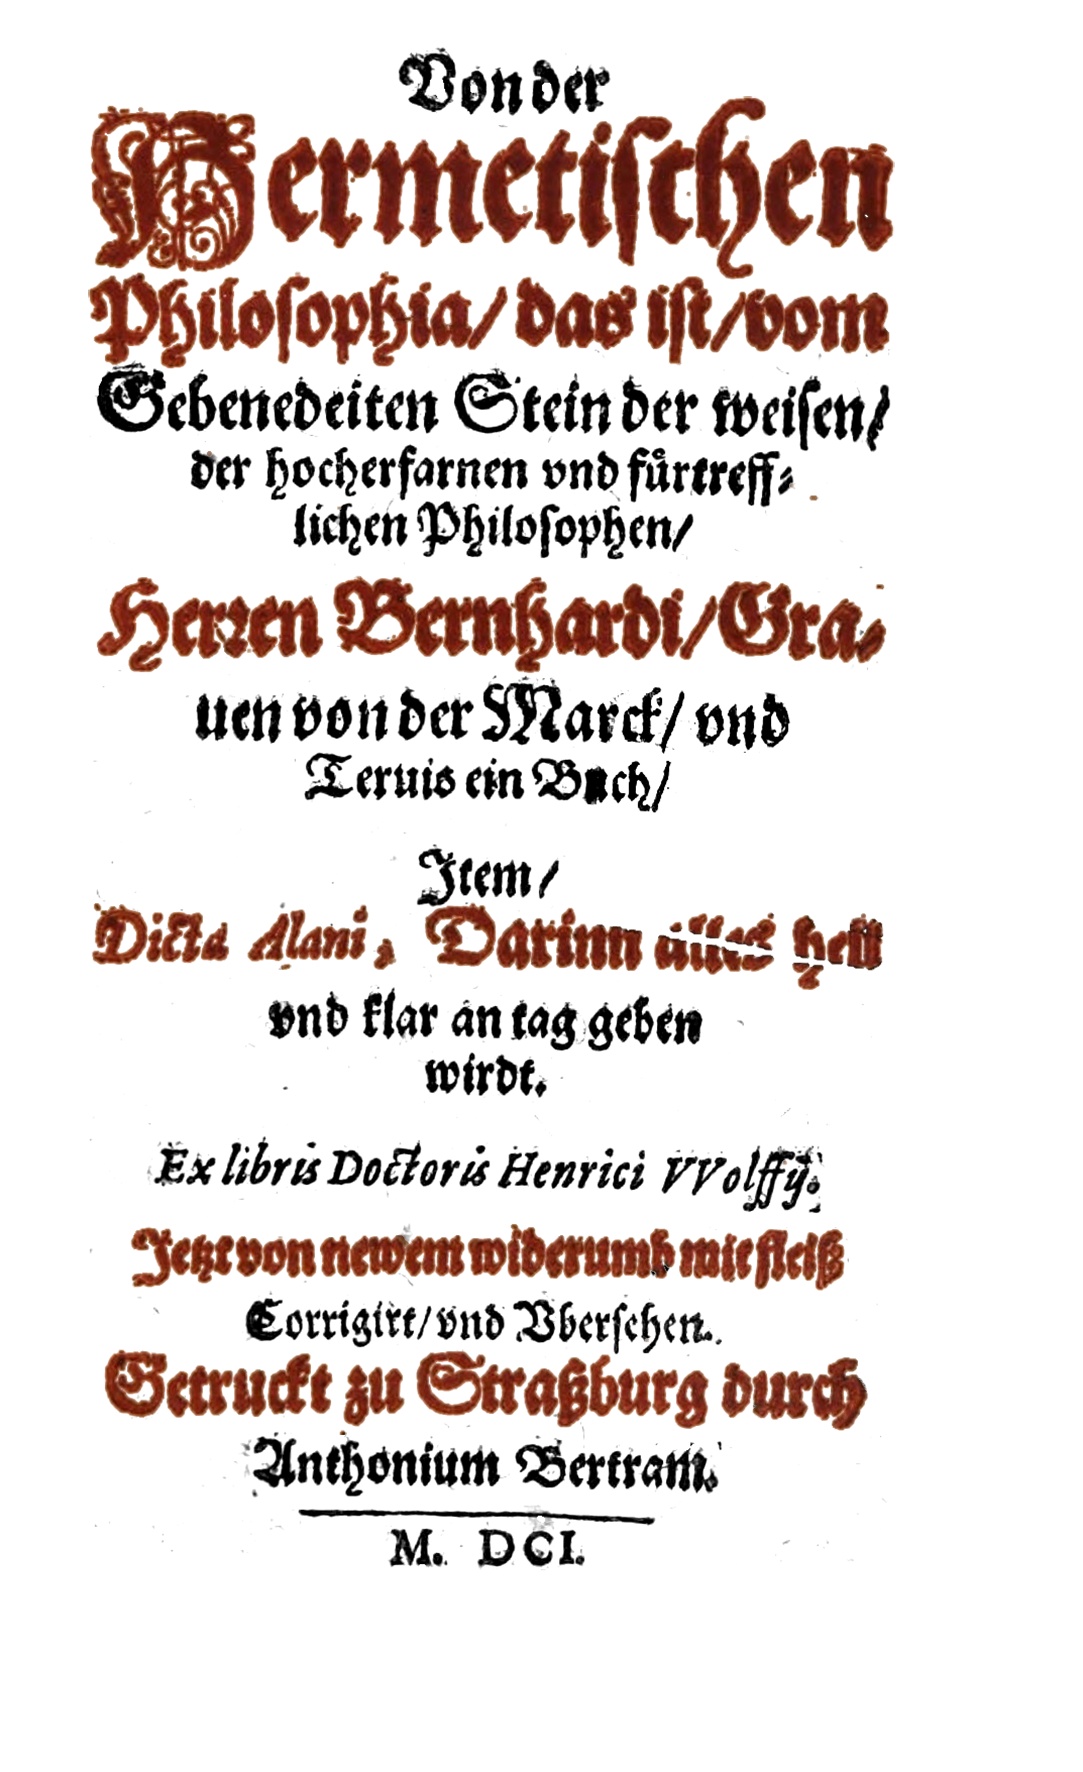 Von der
Hermetiſchen
Philoſophia/ das iſt/ vom
Gebenedeiten Stein der weiſen/
der hocherfarnen vnd fuͤrtreff⸗
lichen Philoſophen/
Herꝛen Bernhardi/ Gra⸗
uen von der Marck/ vnd
Teruis ein Buch/
Item/
Dicta Alani, Darinn alles hell
vnd klar an tag geben
wirdt.
Ex libris Doctoris Henrici VVolffij.
Jetzt von newem widerumb mit fleiß
Corrigirt/ vnd Vberſehen.
Getruckt zu Straßburg durch
Anthonium Bertram.
M. DCI.